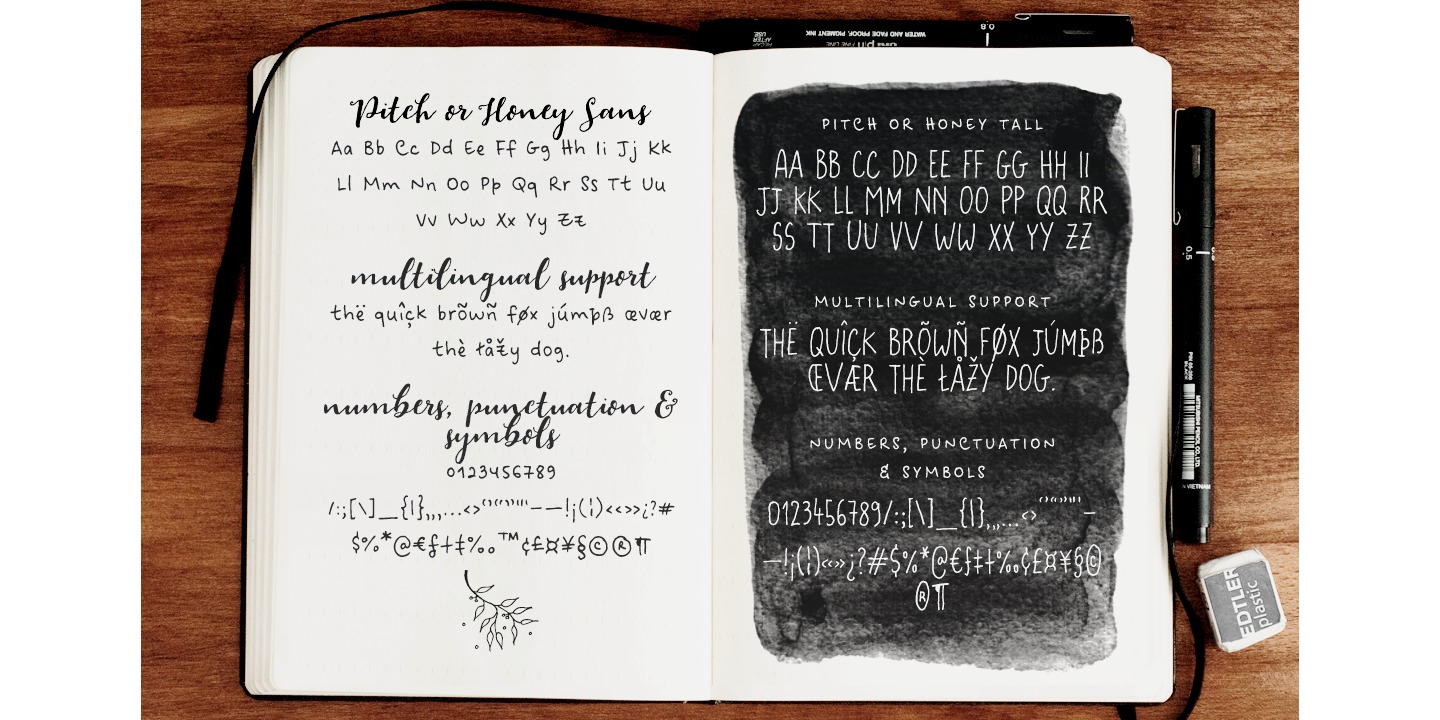 Pitch or Honey Sans
Aa Bb Cc Dd Ee Ff Gg Hh Ii Jj Kk
Ll Mm Nn Oo Pp Qq Rr Ss Tt Uu
Vv Ww Xx Yy Zz
multilingual support
thë quîçk brõwñ føx júmpß œvær
thè łåžy dog.
numbers, punctuation &
symbols
0123456789
/:;[\]__{|}‚„,…‹›‘’“”'"–—!¡(¦)«‹›»¿?#
$%*@€ƒ†‡‰™¢£¤¥§©®¶
PITCH OR HONEY TALL
AA BB CC DD EE FF GG HH II
JJ KK LL MM NN OO PP QQ RR
SS TT UU VV WW XX YY ZZ
MULTILINGUAL SUPPORT
THË QUÎÇK BRÕWÑ FØX JÚMÞß
ŒVÆR THÈ ŁÅŽY DOG.
NUMBERS, PUNCTUATION
& SYMBOLS
0123456789/:;[\]__{|}‚„,…‹›‘’“”'"–
—!¡(¦)«»¿?#$%*@€ƒ†‡‰¢£¤¥§©
®¶
WATER AND FADE PROOF, PIGMENT INK
uni pin FINE LINE
RECAP AFTER USE
0.8
0.5
PIN 05-200
BLACK
MITSUBISHI PENCIL CO., LTD.
VIETNAM
EDTLER
plastic